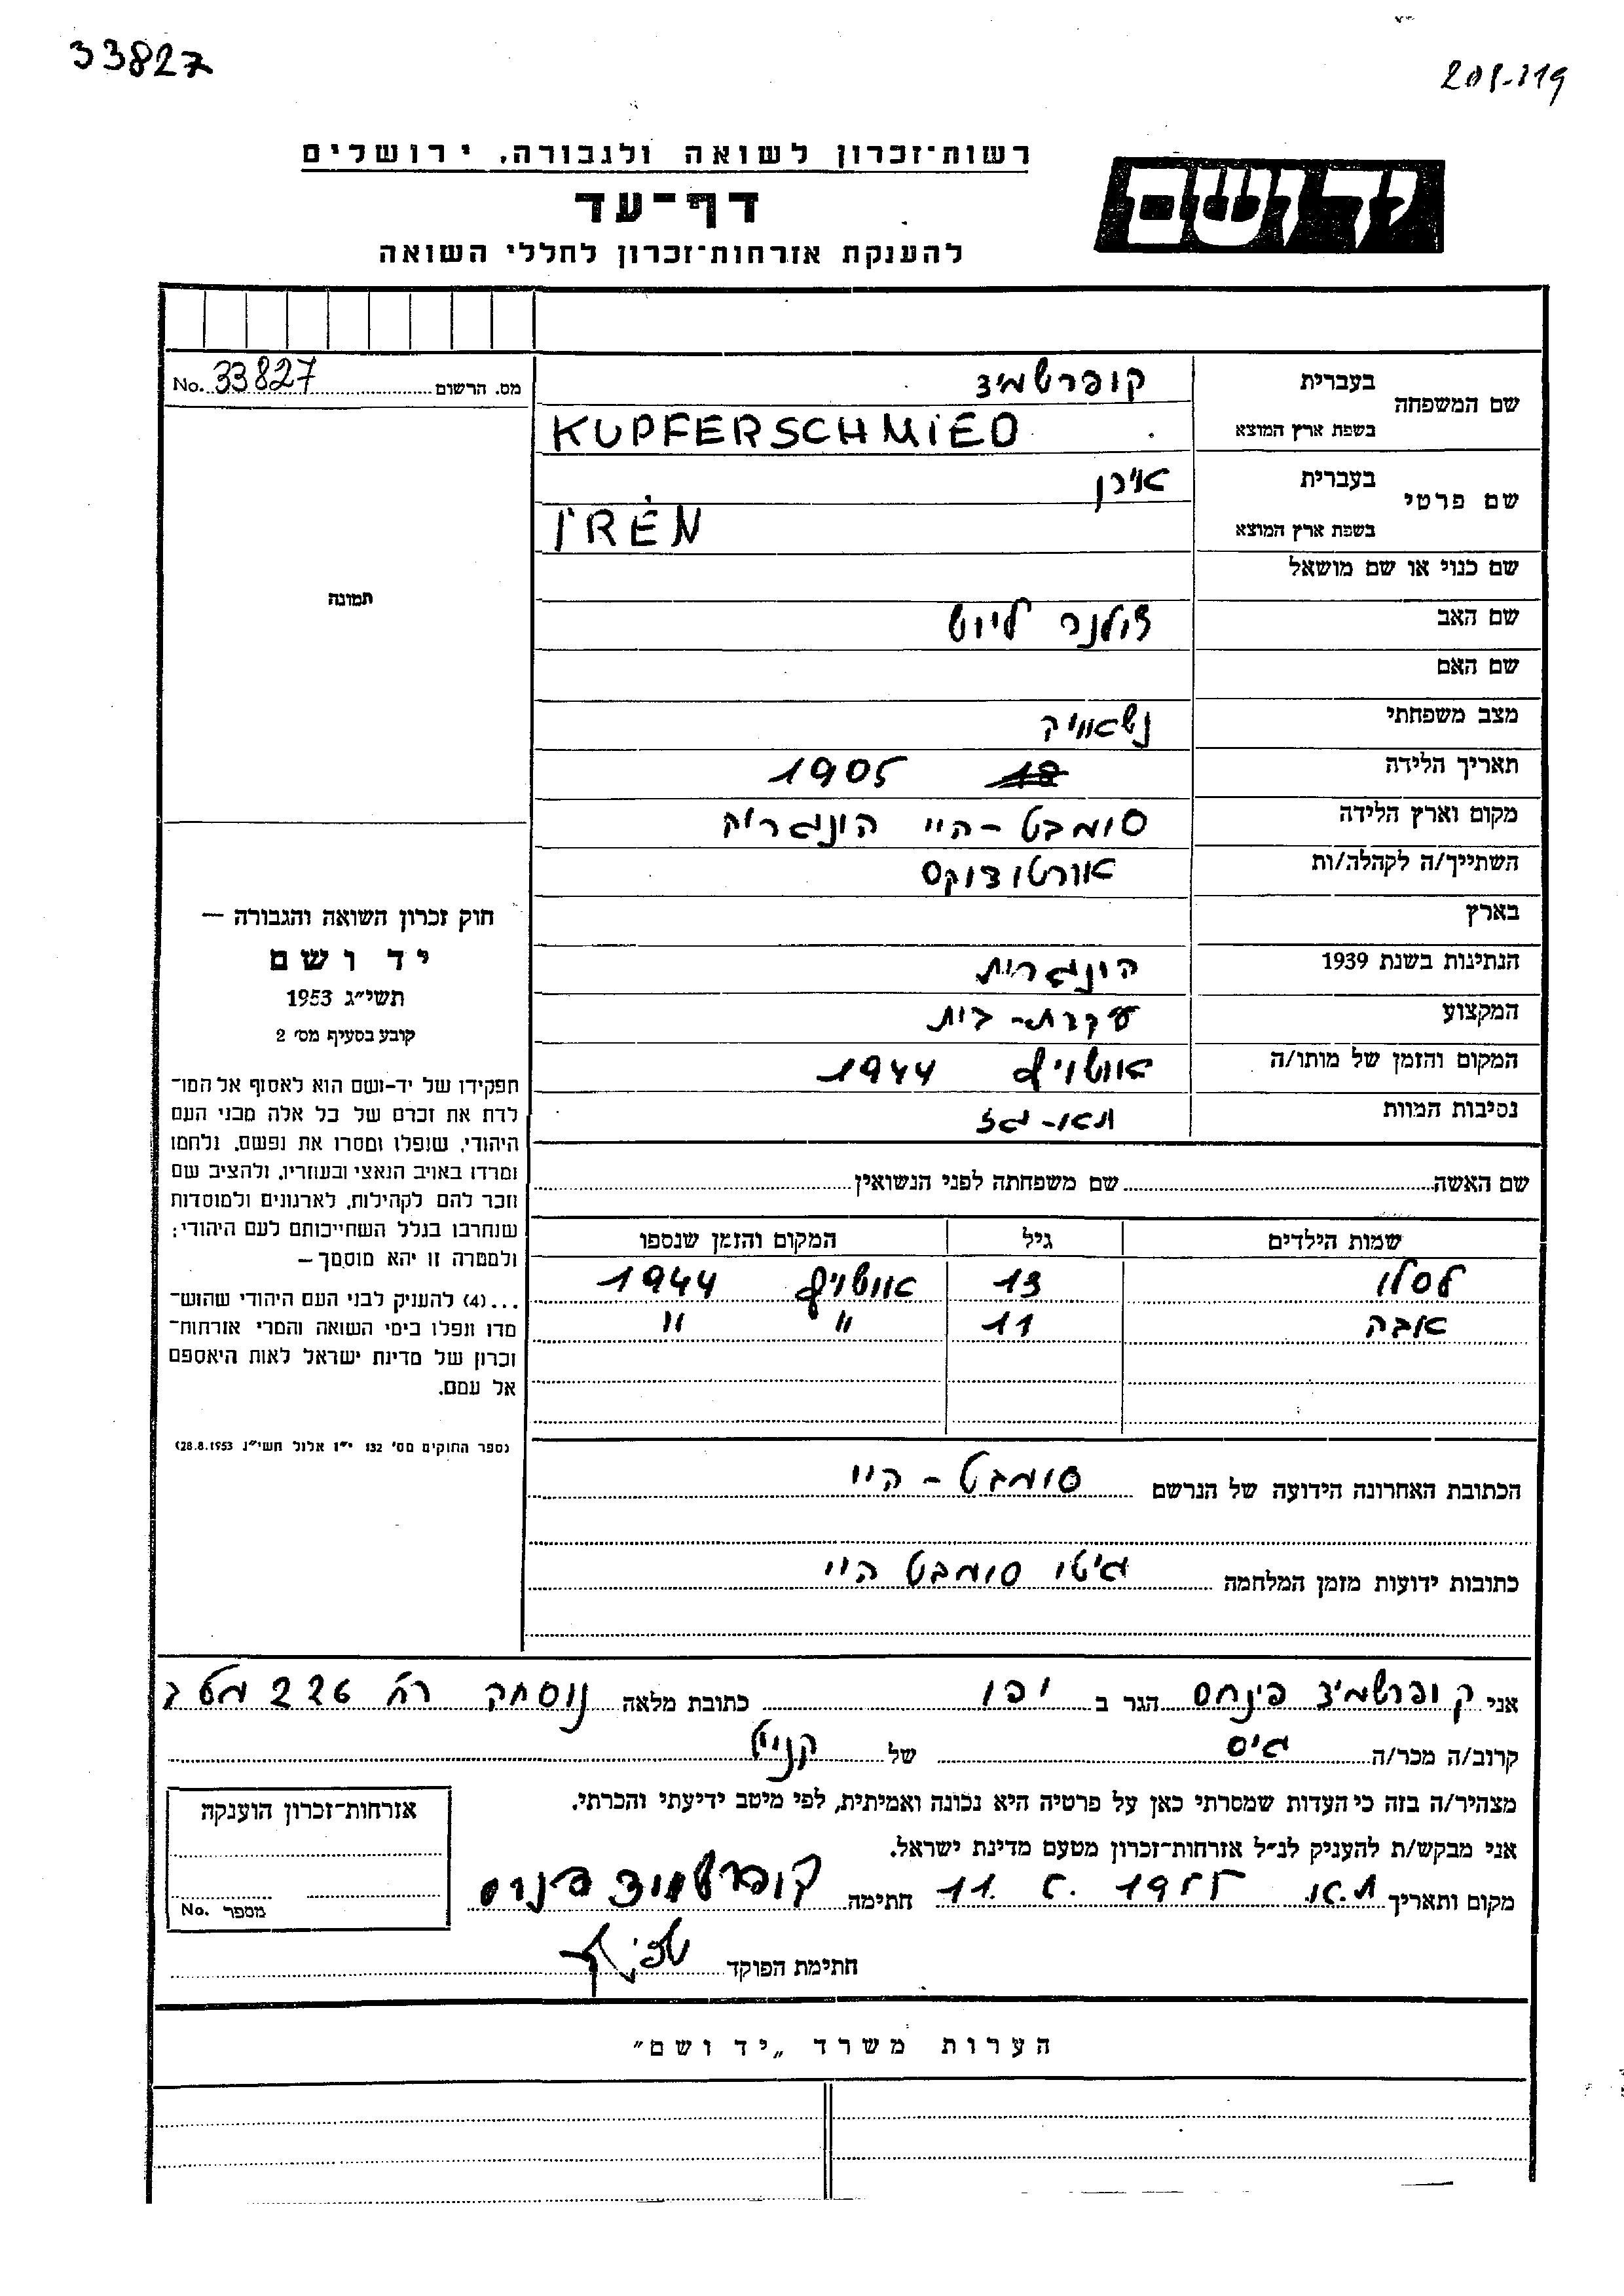 33827
רשות־זכרון לשואה ולגבורה, ירושלים
יד ושם
דף־עד
להענקת אזרחות־זכרון לחללי השואה
No. 33827 מס. הרשום
שם המשפחה
בעברית קופרשמיד
בשפת ארץ המוצא KUPFERSCHMIED
שם פרטי
בעברית אירן
בשפת ארץ המוצא IRÉN
שם כנוי או שם מושאל
תמונה
שם האב ליוט
שם האם
מצב משפחתי נשאוויה
תאריך הלידה 18 1905
מקום וארץ הלידה סומבט-היי הונגריה
השתייך/ה לקהלה/ות אורטודוקס
בארץ
הנתינות בשנת 1939 הונגרית
המקצוע עקרת-בית
המקום והזמן של מותו/ה אושויץ 1944
נסיבות המוות תאו-גז
שם האשה שם משפחתה לפני הנשואין
שמות הילדים גיל המקום והזמן שנספו
לסלו 13 אושויץ 1944
אבה 11 " "
הכתובת האחרונה הידועה של הנרשם סומבט-היי
כתובות ידועות מזמן המלחמה גיטו סומבט היי
חוק זכרון השואה והגבורה —
יד ושם
תשי״ג 1953
קובע בסעיף מס׳ 2
תפקידו של יד-ושם הוא לאסוף אל המו־
לדת את זכרם של כל אלה מבני העם
היהודי, שנפלו ומסרו את נפשם, נלחמו
ומרדו באויב הנאצי ובעוזריו, ולהציב שם
וזכר להם לקהילות, לארגונים ולמוסדות
שנחרבו בגלל השתייכותם לעם היהודי;
ולמטרה זו יהא מוסמך —
...(4) להעניק לבני העם היהודי שהוש־
מדו ונפלו בימי השואה והמרי אזרחות־
זכרון של מדינת ישראל לאות היאספם
אל עמם.
(ספר החוקים מס׳ 132 י״ז אלול תשי״ג 28.8.1953)
אני קופרשמיד פינחס הגר ב יפו כתובת מלאה נוסחק רח 226 מס ב
קרוב/ה מכר/ה גיס של
מצהיר/ה בזה כי העדות שמסרתי כאן על פרטיה היא נכונה ואמיתית, לפי מיטב ידיעתי והכרתי.
אני מבקש/ת להעניק לנ״ל אזרחות־זכרון מטעם מדינת ישראל.
מקום ותאריך ת.א. 11. 1955 חתימה קופרשמיד פנחס
חתימת הפוקד
אזרחות־זכרון הוענקה
מספר No.
הערות משרד „יד ושם״